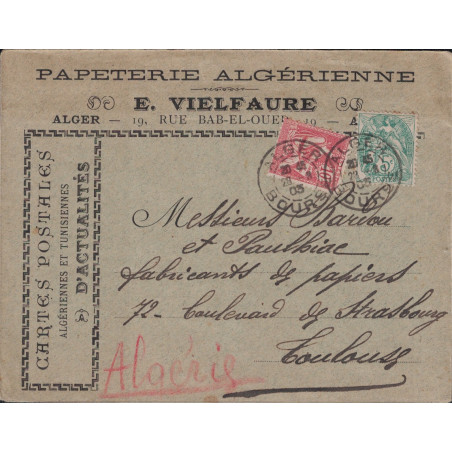 PAPETERIE ALGÉRIENNE
E. VIELFAURE
ALGER — 19, RUE BAB-EL-OUED, 19 — A
CARTES POSTALES
ALGÉRIENNES ET TUNISIENNES
D'ACTUALITÉS
ALGER
BOURSE
ALGER
BOURSE
5
Messieurs Bardou
et Pauilhac
fabricants de papiers
72 - boulevard de Strasbourg
Toulouse
Algérie